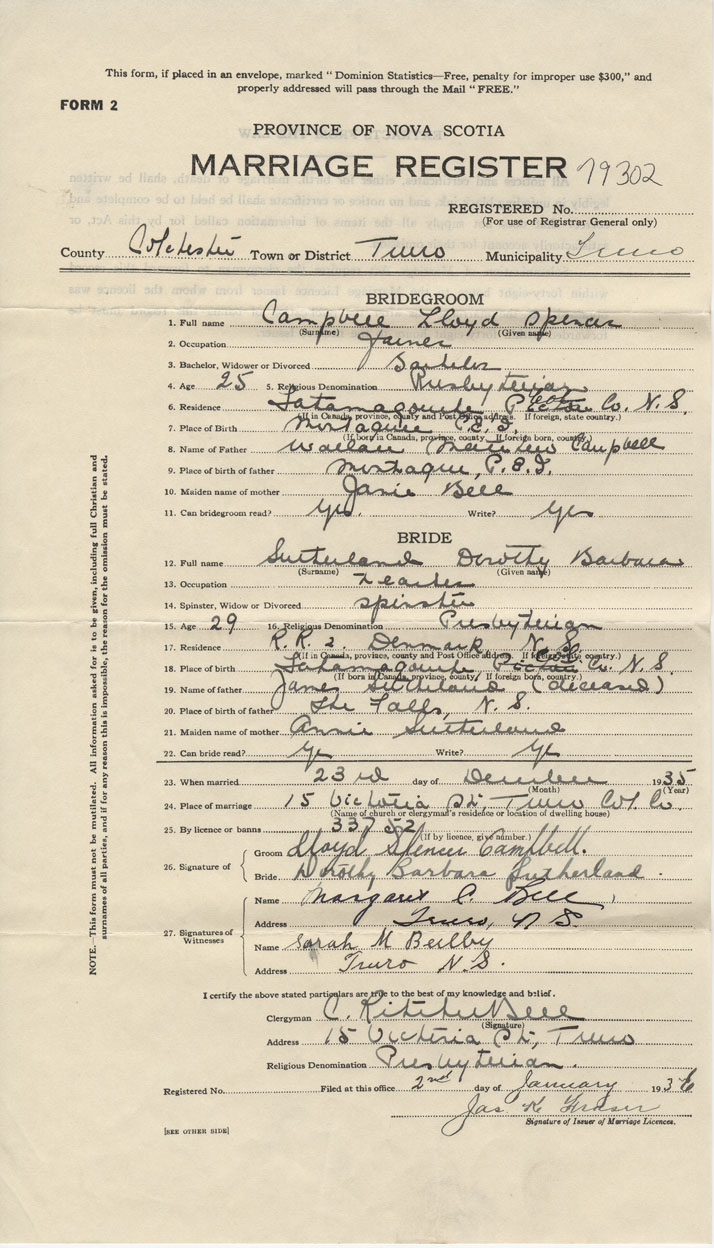 This form, if placed in an envelope, marked "Dominion Statistics—Free, penalty for improper use $300," and
properly addressed will pass through the Mail "FREE."
FORM 2
PROVINCE OF NOVA SCOTIA
MARRIAGE REGISTER 79302
REGISTERED No.
(For use of Registrar General only)
County Colchester Town or District Truro Municipality Truro
BRIDEGROOM
1. Full name Campbell Lloyd Spencer
(Surname) (Given name)
2. Occupation Farmer
3. Bachelor, Widower or Divorced Bachelor
4. Age 25 5. Religious Denomination Presbyterian
6. Residence Tatamagouche Pictou Col. Co. N. S.
(If in Canada, province, county and Post Office address. If foreign, state country.)
7. Place of Birth Montague P.E.I.
(If born in Canada, province, county. If foreign born, country.)
8. Name of Father Wallace Campbell
9. Place of birth of father Montague, P.E.I.
10. Maiden name of mother Janie Bell
11. Can bridegroom read? Yes Write? Yes
BRIDE
12. Full name Sutherland Dorothy Barbara
(Surname) (Given name)
13. Occupation Teacher
14. Spinster, Widow or Divorced spinster
15. Age 29 16. Religious Denomination Presbyterian
17. Residence R.R. 2. Denmark, N. S.
(If in Canada, province, county and Post Office address. If foreign, country.)
18. Place of birth Tatamagouche Pictou Col. Co. N. S.
(If born in Canada, province, county. If foreign born, country.)
19. Name of father James Sutherland (deceased)
20. Place of birth of father The Falls, N. S.
21. Maiden name of mother Annie Sutherland
22. Can bride read? Yes Write? Yes
23. When married 23rd day of December 1935
(Month) (Year)
24. Place of marriage 15 Victoria St., Truro Col. Co.
(Name of church or clergyman's residence or location of dwelling house)
25. By licence or banns 33752
(If by licence, give number.)
26. Signature of
Groom Lloyd Spencer Campbell.
Bride Dorothy Barbara Sutherland.
27. Signatures of Witnesses
Name Margaret C. Bell
Address Truro, N S.
Name Sarah M Beilby
Address Truro N.S.
I certify the above stated particulars are true to the best of my knowledge and belief.
Clergyman C. Ritchie Bell
(Signature)
Address 15 Victoria St., Truro
Religious Denomination Presbyterian.
Registered No. Filed at this office 2nd day of January 1936
Jas K Fraser
Signature of Issuer of Marriage Licences.
[SEE OTHER SIDE]
NOTE.—This form must not be mutilated. All information asked for is to be given, including full Christian and
surnames of all parties, and if for any reason this is impossible, the reason for the omission must be stated.